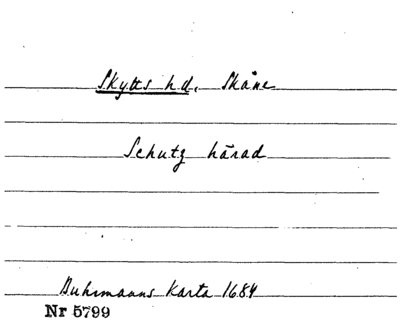 Skytts hd. Skåne
Schutz härad
Buhrmanns Karta 1684
Nr 5799